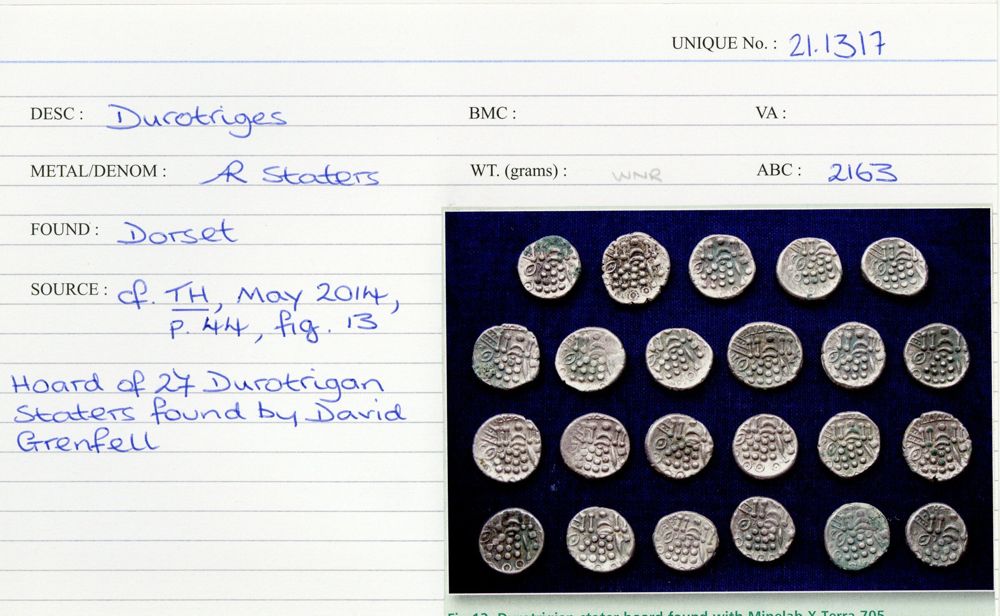 UNIQUE No. : 21.1317
DESC : Durotriges BMC : VA :
METAL/DENOM : AR Staters WT. (grams) : WNR ABC : 2163
FOUND : Dorset
SOURCE : cf. TH, May 2014,
p. 44, fig. 13
Hoard of 27 Durotrigan
Staters found by David
Grenfell
Fig 13. Durotrigian stater hoard found with Minelab X-Terra 705